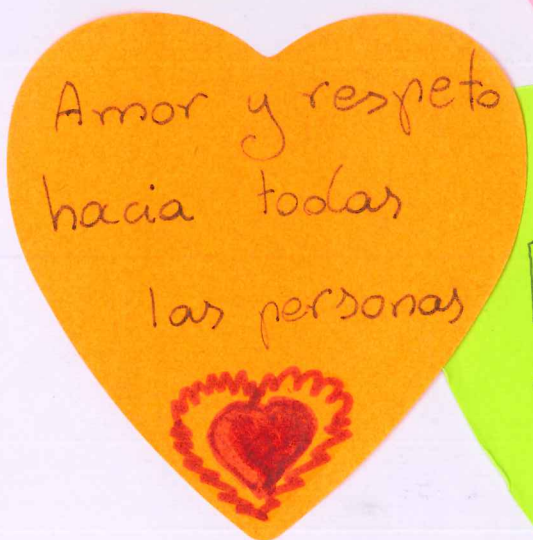 Amor y respeto
hacia todas
las personas